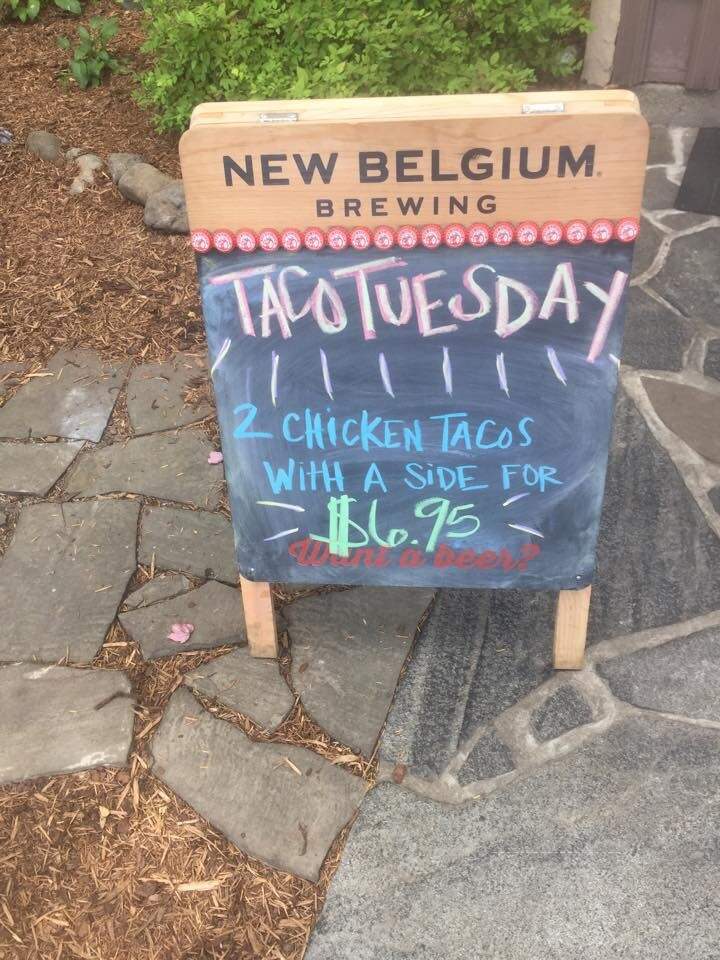 NEW BELGIUM
BREWING
TACO TUESDAY
2 CHICKEN TACOS
WITH A SIDE FOR
$6.95
Want a beer?